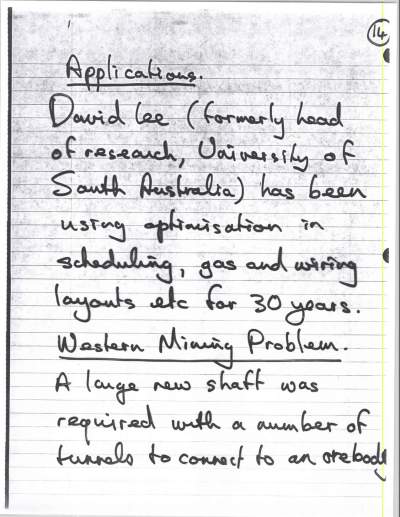 14
Applications.
David Lee (formerly head
of research, University of
South Australia) has been
using optimisation in
scheduling, gas and wiring
layouts etc for 30 years.
Western Mining Problem.
A large new shaft was
required with a number of
tunnels to connect to an orebody